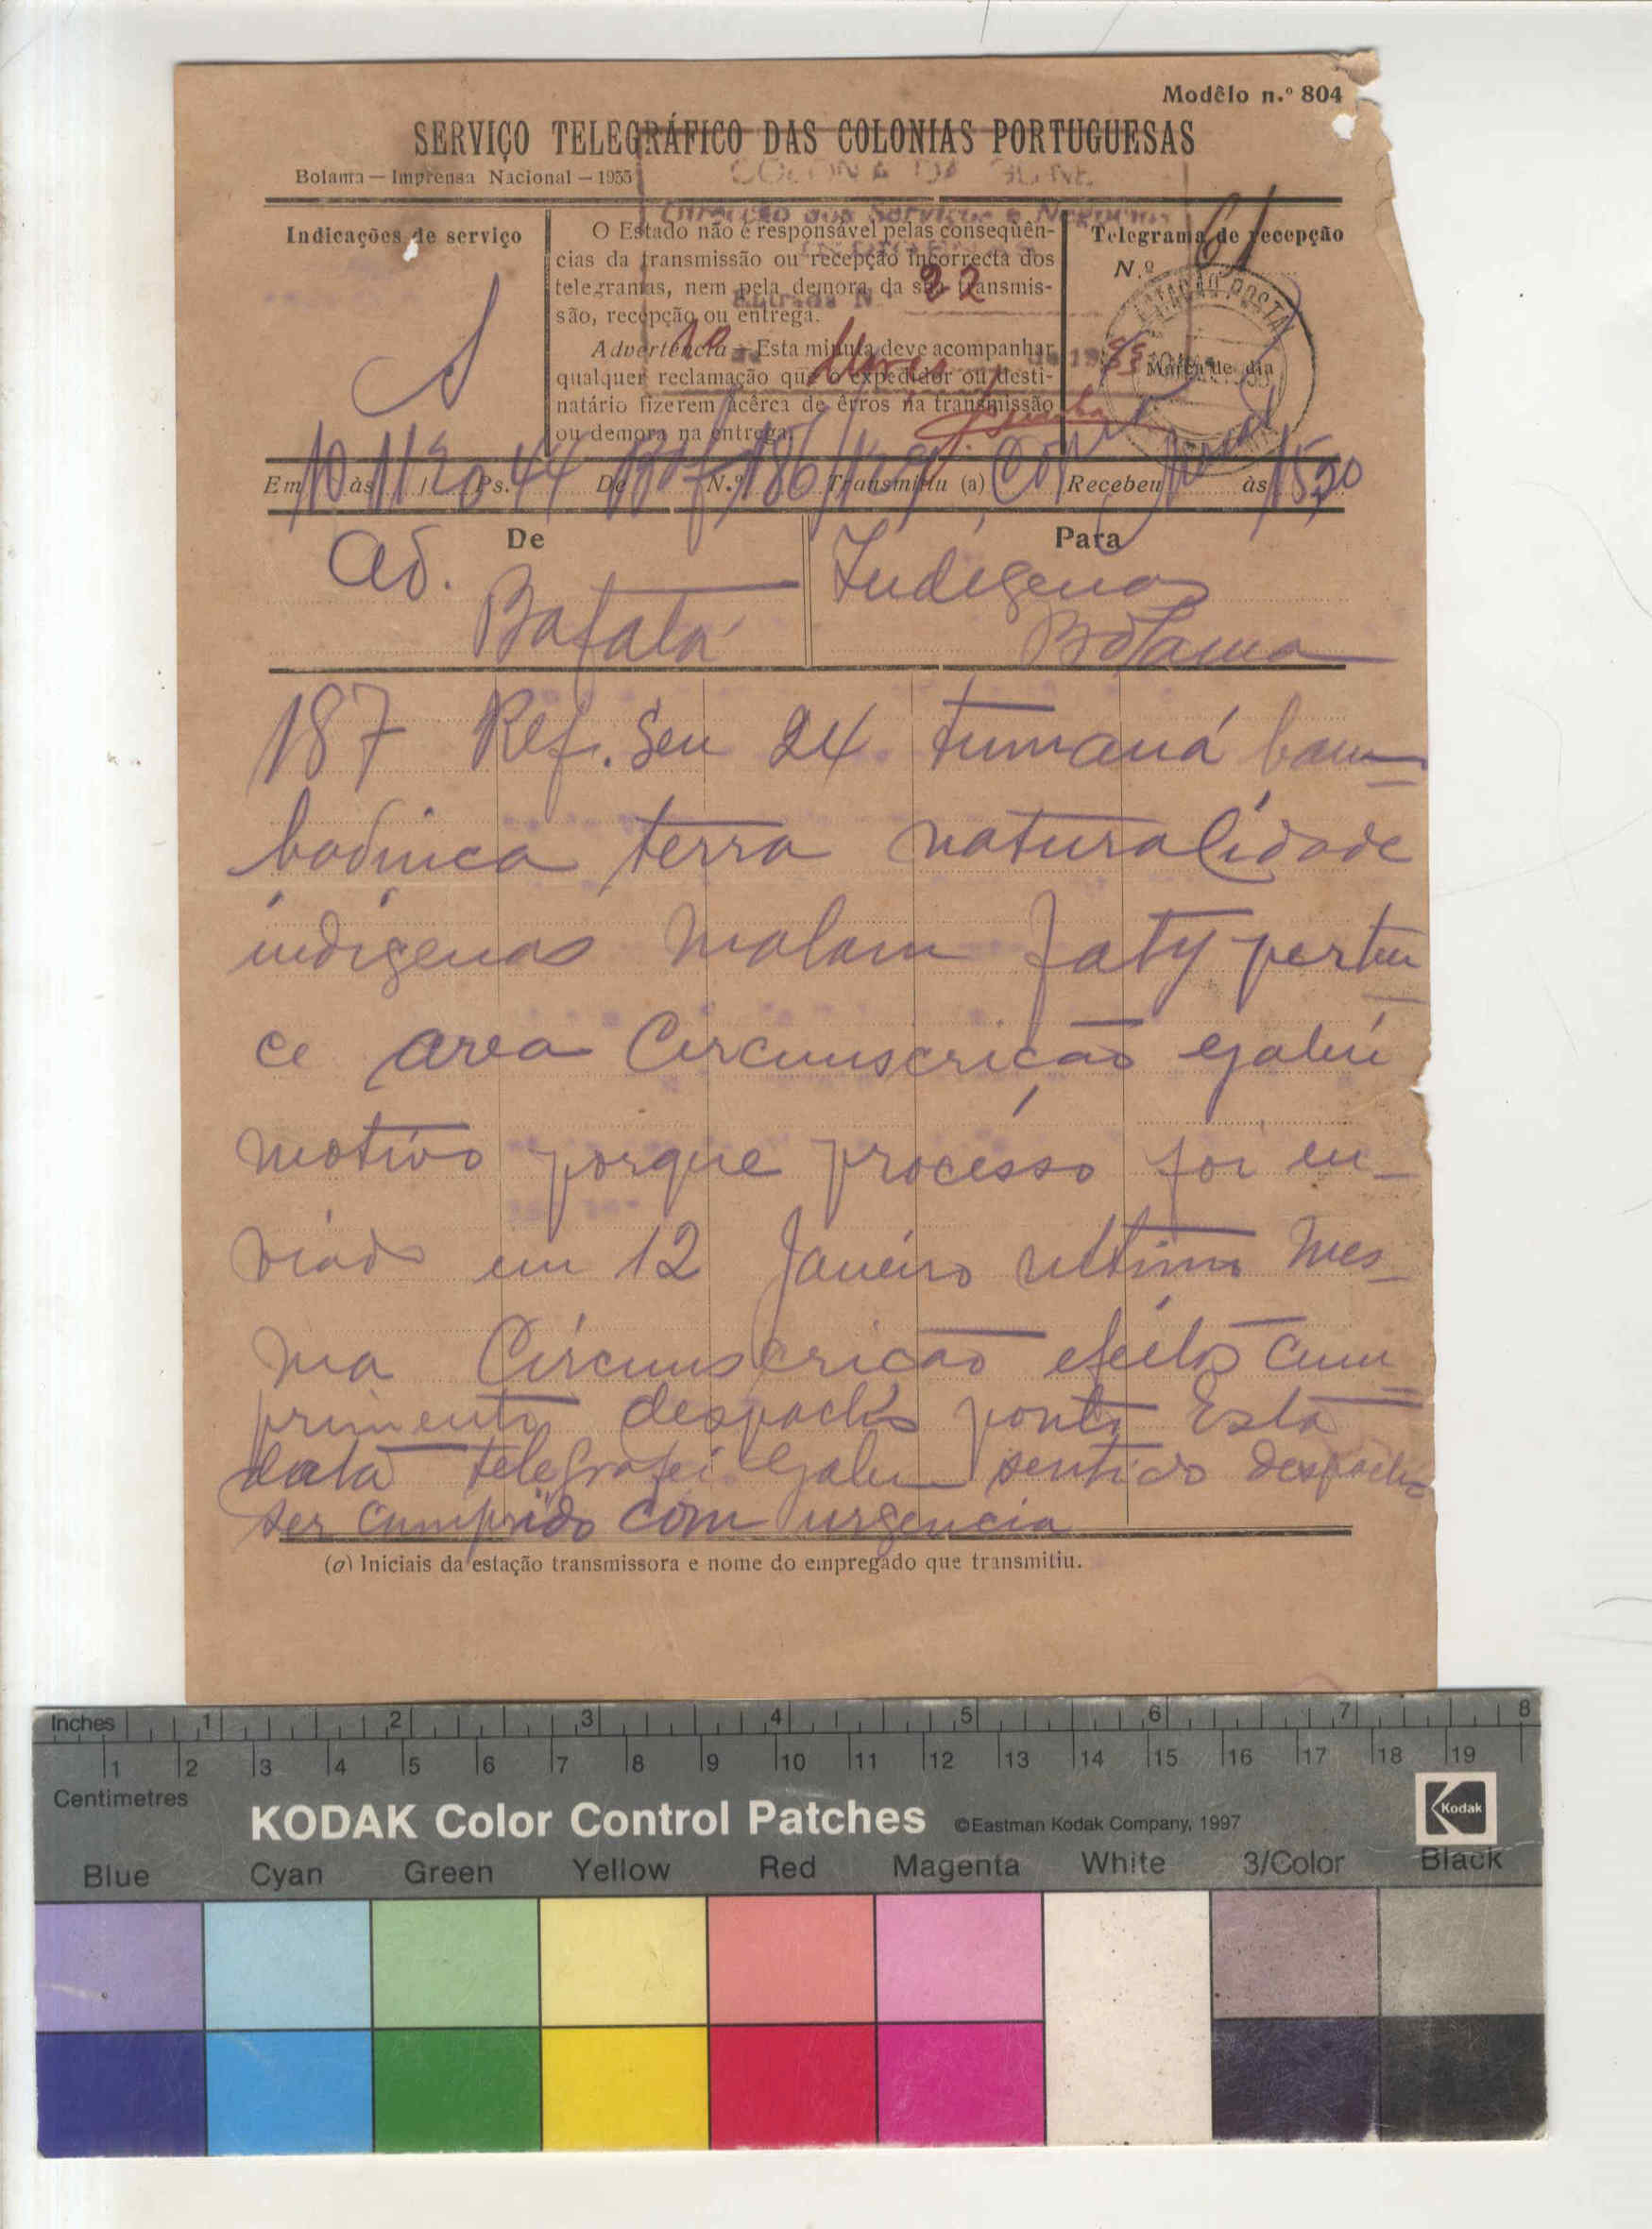 Modêlo n.º 804
SERVIÇO TELEGRÁFICO DAS COLONIAS PORTUGUESAS
Bolama — Imprensa Nacional — 1935
COLONIA DA GUINÉ
Direcção dos Serviços e Negocios
Indicações de serviço
S
O Estado não é responsável pelas conseqüên-
cias da transmissão ou recepção incorrecta dos
telegramas, nem pela demora da sua transmis-
são, recepção ou entrega.
Advertência — Esta minuta deve acompanhar
qualquer reclamação que o expedidor ou desti-
natário fizerem àcêrca de êrros na transmissão
ou demora na entrega.
Entrada N.º 22
10 Março de 1935
Telegrama de recepção
N.º 61
ESTAÇÃO POSTAL
Marca de dia
Em 10 às 1120 Ps. 44 De Baf N.º 186 Transmitiu (a) Recebeu às 1520
De
Ad.
Bafatá
Para
Indigenas
Bolama
187 Ref. Seu 24 tumaná bam-
badinca terra naturalidade
indigenas Malam Faty perten
ce area Circunscricão Gabú
motivo porque processo foi en-
viado em 12 Janeiro ultimo mes-
ma Circunscricão efeitos cum
primento despacho ponto Esta
data telegrafei Gabu sentido despacho
ser cumprido com urgencia
(a) Iniciais da estação transmissora e nome do empregado que transmitiu.
Inches 1 2 3 4 5 6 7 8
1 2 3 4 5 6 7 8 9 10 11 12 13 14 15 16 17 18 19
Centimetres
KODAK Color Control Patches ©Eastman Kodak Company, 1997
Kodak
Blue Cyan Green Yellow Red Magenta White 3/Color Black